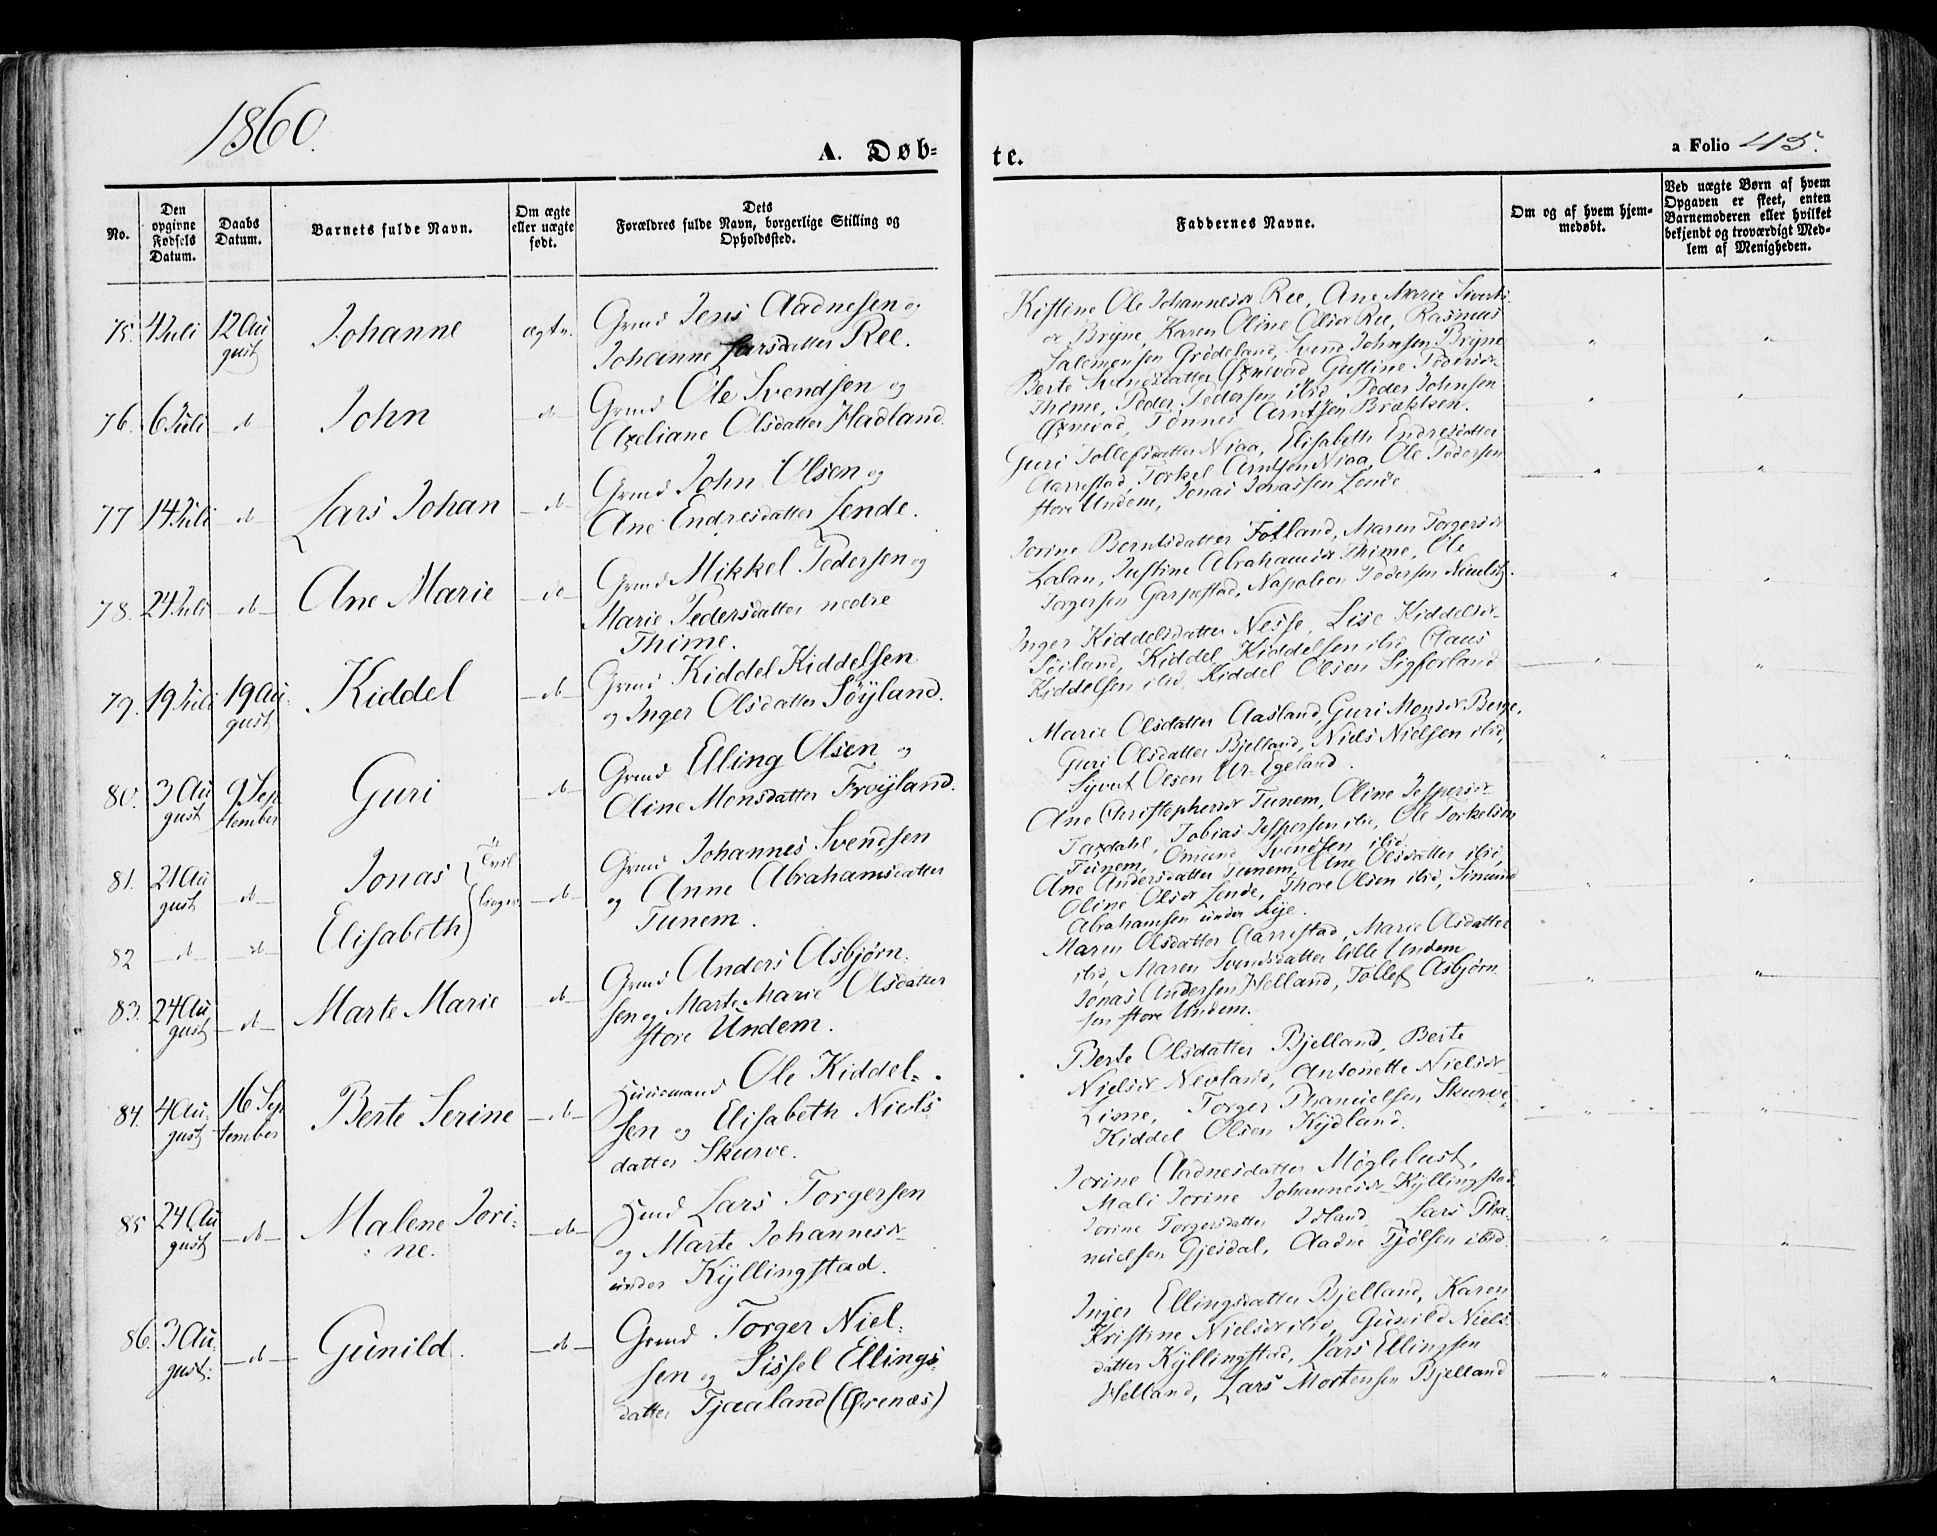 1860.
A. Døb-
te.
a Folio 45.
No.
Den opgivne Fødsels Datum.
Daabs Datum.
Barnets fulde Navn.
Om ægte eller uægte født.
Dets Forældres fulde Navn, borgerlige Stilling og Opholdssted.
Faddernes Navne.
Om og af hvem hjemmedøbt.
Ved uægte Børn af hvem Opgaven er skeet, enten Barnemoderen eller hvilket bekjendt og troværdigt Medlem af Menigheden.
75. 4 Juli 12 Au
gust
Johanne
ægte.
Grmd Jens Aadnesen og
Johanne Larsdatter Ree.
Kistine Ole Johannesdr Ree, Ane Marie Siverts
dr Bryne, Karen Oline Olsdr Ree, Rasmus
Salemonsen Grødeland, Svend Johnsen Bryne
76. 6 Juli d
John
d
Grmd Ole Svendsen og
Axeliane Olsdatter Hadland.
Berte Svendsdatter Øxnevad, Gustine Pedersdr
Thime, Peder Pedersen ibid, Peder Johnsen
Øxnevad, Tønnes Arntsen Brækken.
77 14 Juli d
Lars Johan
d
Grmd John Olsen og
Ane Endresdatter Lende.
Guri Tollefsdatter Niaa, Elisabeth Endresdatter
Aarrestad, Torkel Arntsen Niaa, Ole Pedersen
store Undem, Jonas Jonassen Lende
78. 24 Juli d
Ane Marie
d
Grmd Mikkel Pedersen og
Marie Pedersdatter nedre
Thime.
Jorine Berntsdatter Fotland, Maren Torgersdr
Lalan, Justine Abrahamsdr Thime, Ole
Torgersen Garpestad, Napoleon Pedersen
79. 19 Juli 19 Au
gust
Kiddel
d
Grmd Kiddel Kiddelsen
og Inger Olsdatter Søyland.
Inger Kiddelsdatter Nesse, Lise Kiddelsdr
Søiland, Kiddel Kiddelsen ibid, Claus
Kiddelsen ibid, Kiddel Olsen Sigferland
80. 3 Au 9 Sep
gust tember
Guri
d
Grmd Elling Olsen og
Oline Monsdatter Frøyland.
Marie Olsdatter Aasland, Guri Monsdr Berge,
Guri Olsdatter Bjelland, Niels Nielsen ibid,
Syvert Olsen Ur-Egeland.
81. 21 Au
gust d
Jonas Tvil
d
Grmd Johannes Svendsen
og Anne Abrahamsdatter
Tunem.
Ane Christophersdr Tunem, Oline Jespersdr
Taxdahl, Tobias Jespersen ibid, Ole Torkelsen
Tunem, Omund Svendsen ibid.
82 d d
Elisabeth linger
Ane Andersdatter Tunem, Ane Olsdatter ibid,
Oline Olsdr Lende, Thore Olsen ibid, Simund
Abrahamsen under Lye.
83. 24 Au
gust d
Marte Marie
d
Grmd Anders Asbjørn-
sen og Marte Marie Olsdatter
store Undem.
Maren Olsdatter Aarrestad, Marie Olsdatter
ibid, Maren Svendsdatter lille Undem
Jonas Andersen Helland, Tollef Asbjørn
sen store Undem.
84. 4 Au 16 Sep
gust tember
Berte Serine
d
Huusmand Ole Kiddel-
sen og Elisabeth Niels
datter Skurve.
Berte Olsdatter Bjelland, Berte
Nielsdr Nevland, Antonette Nielsdr
Lime, Torger Thamielsen Skurve
Kiddel Olsen Kydland.
85 24 Au
gust d
Malene Jori-
ne.
d
Hmd Lars Torgersen
og Marte Johannesdr
under Kÿllingstad.
Jorine Aadnesdatter Møglebust,
Mali Jorine Johannesdr Kyllingstad
Jorine Torgersdatter Idland, Lars Tha-
mielsen Gjesdal, Aadne Tjølsen ibid.
86. 3 Au
gust. d
Gunild.
d
Grmd Torger Niel-
sen og Sissel Ellings-
datter Tjaaland (Ørenæs)
Inger Ellingsdatter Bjelland, Karen
Kristine Nielsdr ibid, Gunild Niels
datter Kÿllingstad, Lars Ellingsen
Helland, Lars Mortensen Bjelland